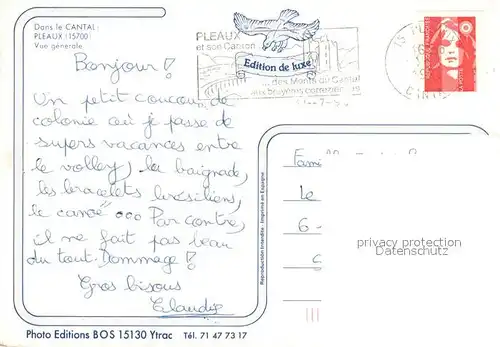 Dans le CANTAL:
PLEAUX (15700)
Vue générale
PLEAUX
et son Canton
Edition de luxe
... des Monts du Cantal
aux bruyères corréziennes
15 PL
Bonjour!
Un petit coucou de
colonie où je passe de
supers vacances entre
le volley, la baignade,
les bracelets brésiliens,
le canoë ooo Par contre,
il ne fait pas beau
du tout. Dommage!
Gros bisous
Claudie
Fami
Le
6
privacy protection
Datenschutz
Reproduction Interdite - Imprimé en Espagne
Photo Editions BOS 15130 Ytrac Tél. 71 47 73 17